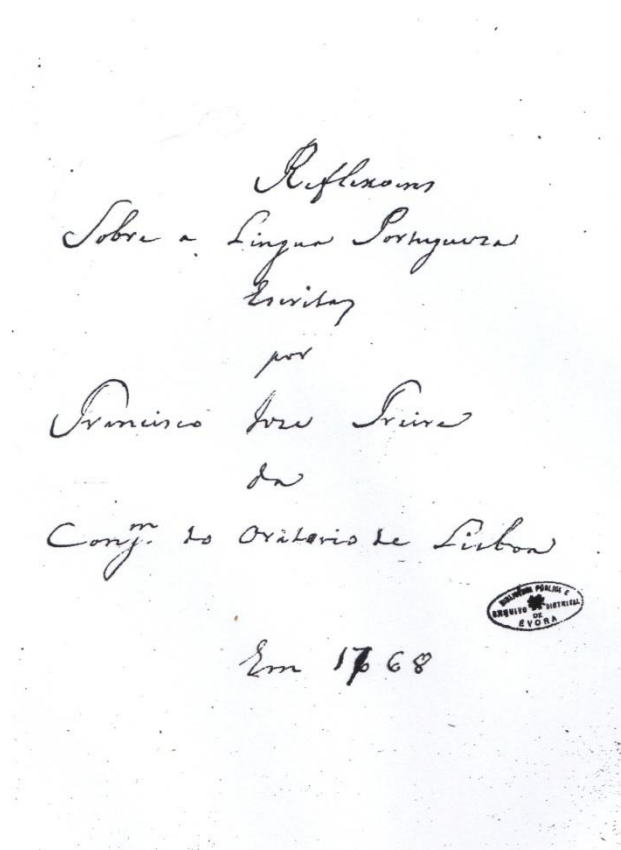 Reflexoens
Sobre a Lingua Portugueza
Escritas
por
Francisco Joze Freire
da
Cong.^m do Oratorio de Lisboa
BIBLIOTECA PÚBLICA E
ARQUIVO DISTRITAL
DE
ÉVORA
Em 1768